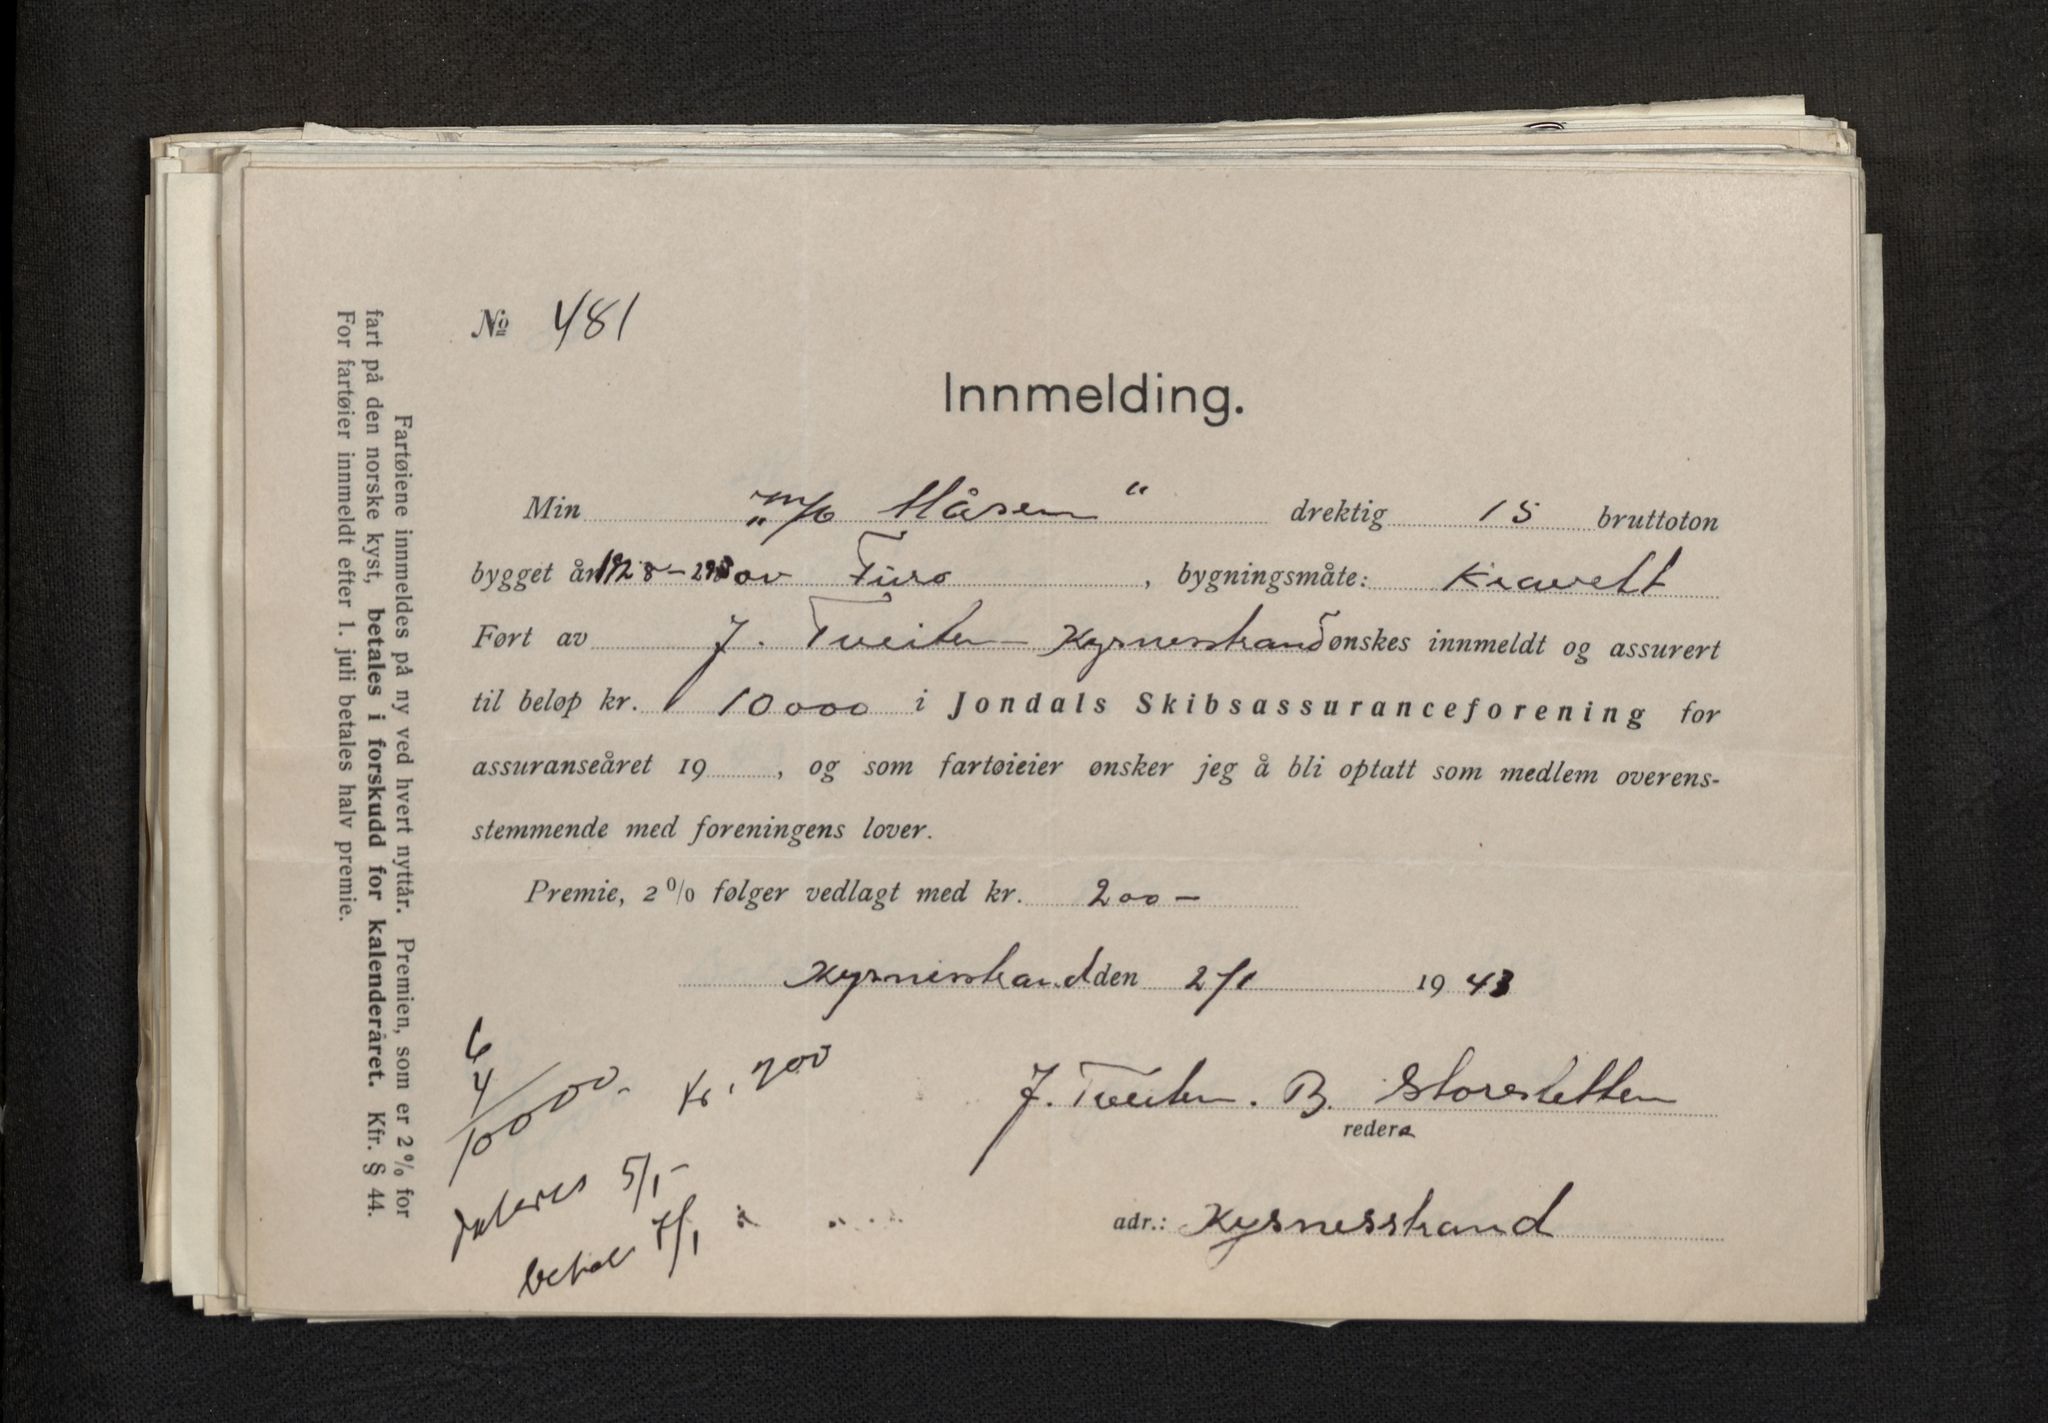 № 481
Innmelding.
Min „m/b Måsen“ drektig 15 bruttoton
bygget år 1928 - av Furo, bygningsmåte: Kravelt
Ført av J. Tveiten - Kysnesstrand ønskes innmeldt og assurert
til beløp kr. 10000 i Jondals Skibsassuranceforening for
assuranseåret 19 , og som fartøieier ønsker jeg å bli optatt som medlem overens-
stemmende med foreningens lover.
Premie, 2 % følger vedlagt med kr. 200 -
Kysnesstrand den 2/1 19 43
J. Tveiten. B. Storesletten
redere
adr.: Kysnesstrand
6
4/10000.- Kr. 200
5/1 -
betal 7/1
Fartøiene innmeldes på ny ved hvert nyttår. Premien, som er 2 % for
fart på den norske kyst, betales i forskudd for kalenderåret. Kfr. § 44.
For fartøier innmeldt efter 1. juli betales halv premie.